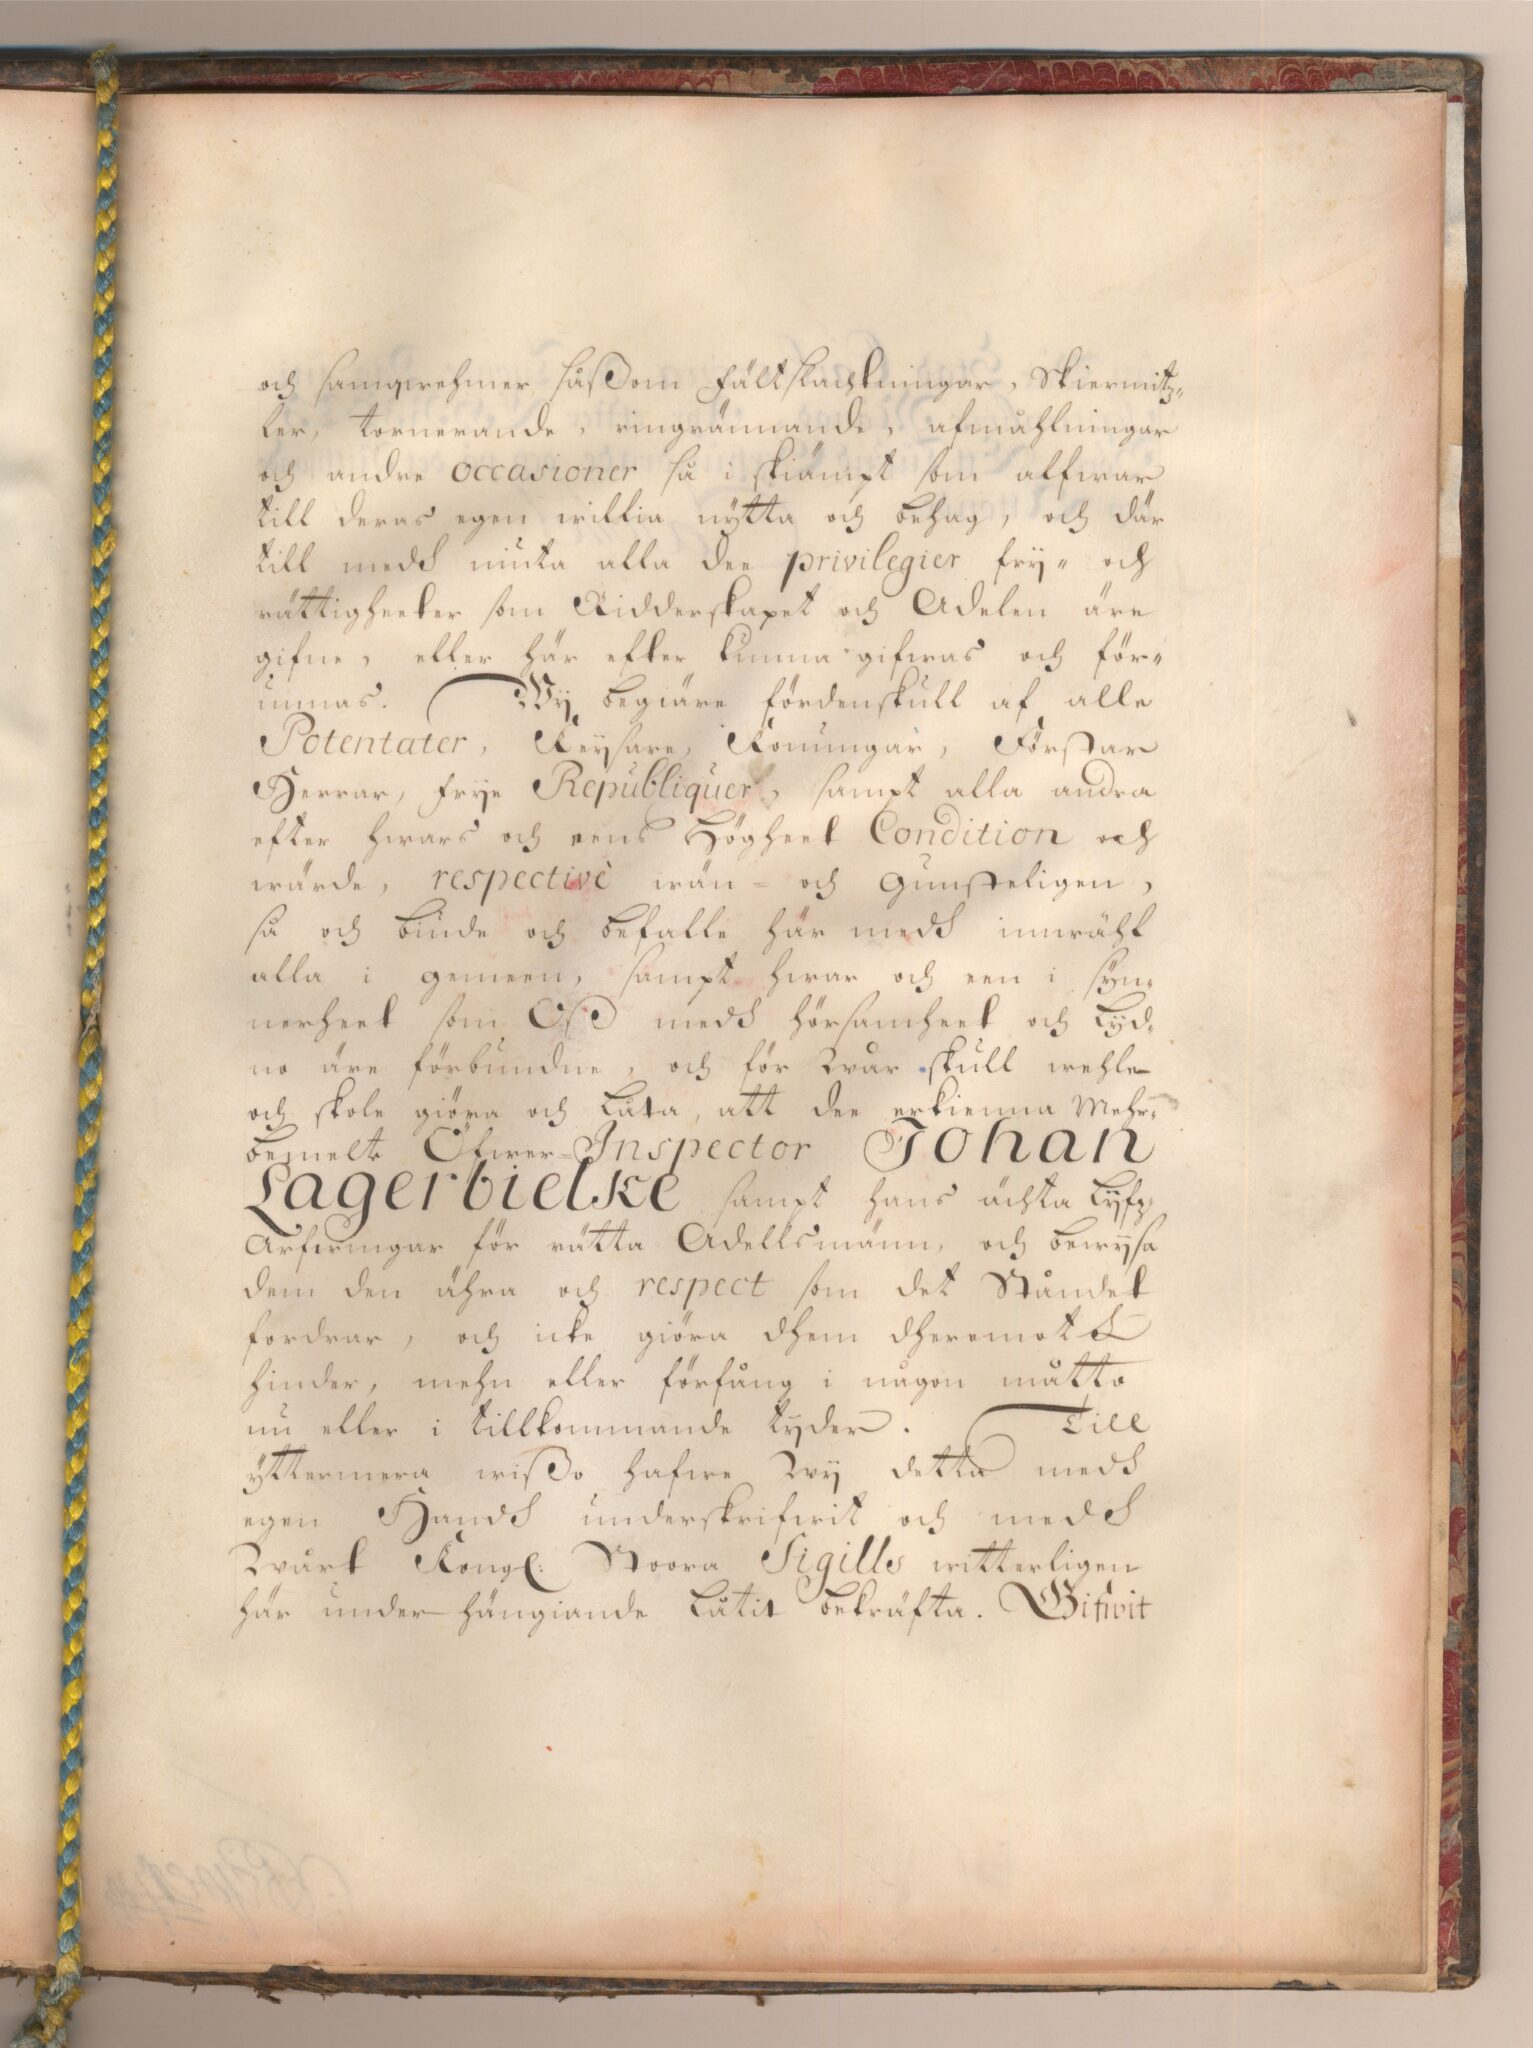 och samqwehmer såßom Fältslachtningar, Skiermitz„
ler, tornerande, ringrännande, afmåhlningar
och andre occasioner så i skiämpt som alfwar
till deras egen willia nytta och behag, och där
till medh niuta alla dee privilegier fry„ och
rättigheeter som Ridderskapet och Adelen äre
gifne, eller här efter kunna gifwas och för„
unnas. Wy begiäre fördenskull af alle
Potentater, Keysare, Konungar, Förstar
Herrar, frye Republiquer, sampt alla andra
efter hwars och eens Högheet Condition och
wärde, respectivè wän- och Gunsteligen,
så och biude och befalle här medh innräht
alla i gemeen, sampt hwar och een i syn„
nerheet som Oß medh hörsamheet och Lyd„
no äre förbundne, och för Wår skull wehle
och skole giöra och Låta, att dee erkienna Mehr„
bemelte Öfwer-Inspector Johan
Lagerbielke sampt hans ächta Lyfz
Arfwingar för rätta Adellsmänn, och bewysa
dem den ähra och respect som det Ståndet
fordrar, och icke giöra dhem dheremoth
hinder, mehn eller förfång i någon måtto
nu eller i tillkommande tyder. Till
yttermera wißo hafwe Wy detta medh
egen Handh underskrifwit och medh
Wårt Kongl: Stoora Sigills witterligen
här under hängiande Låtit bekräfta. Gifwit